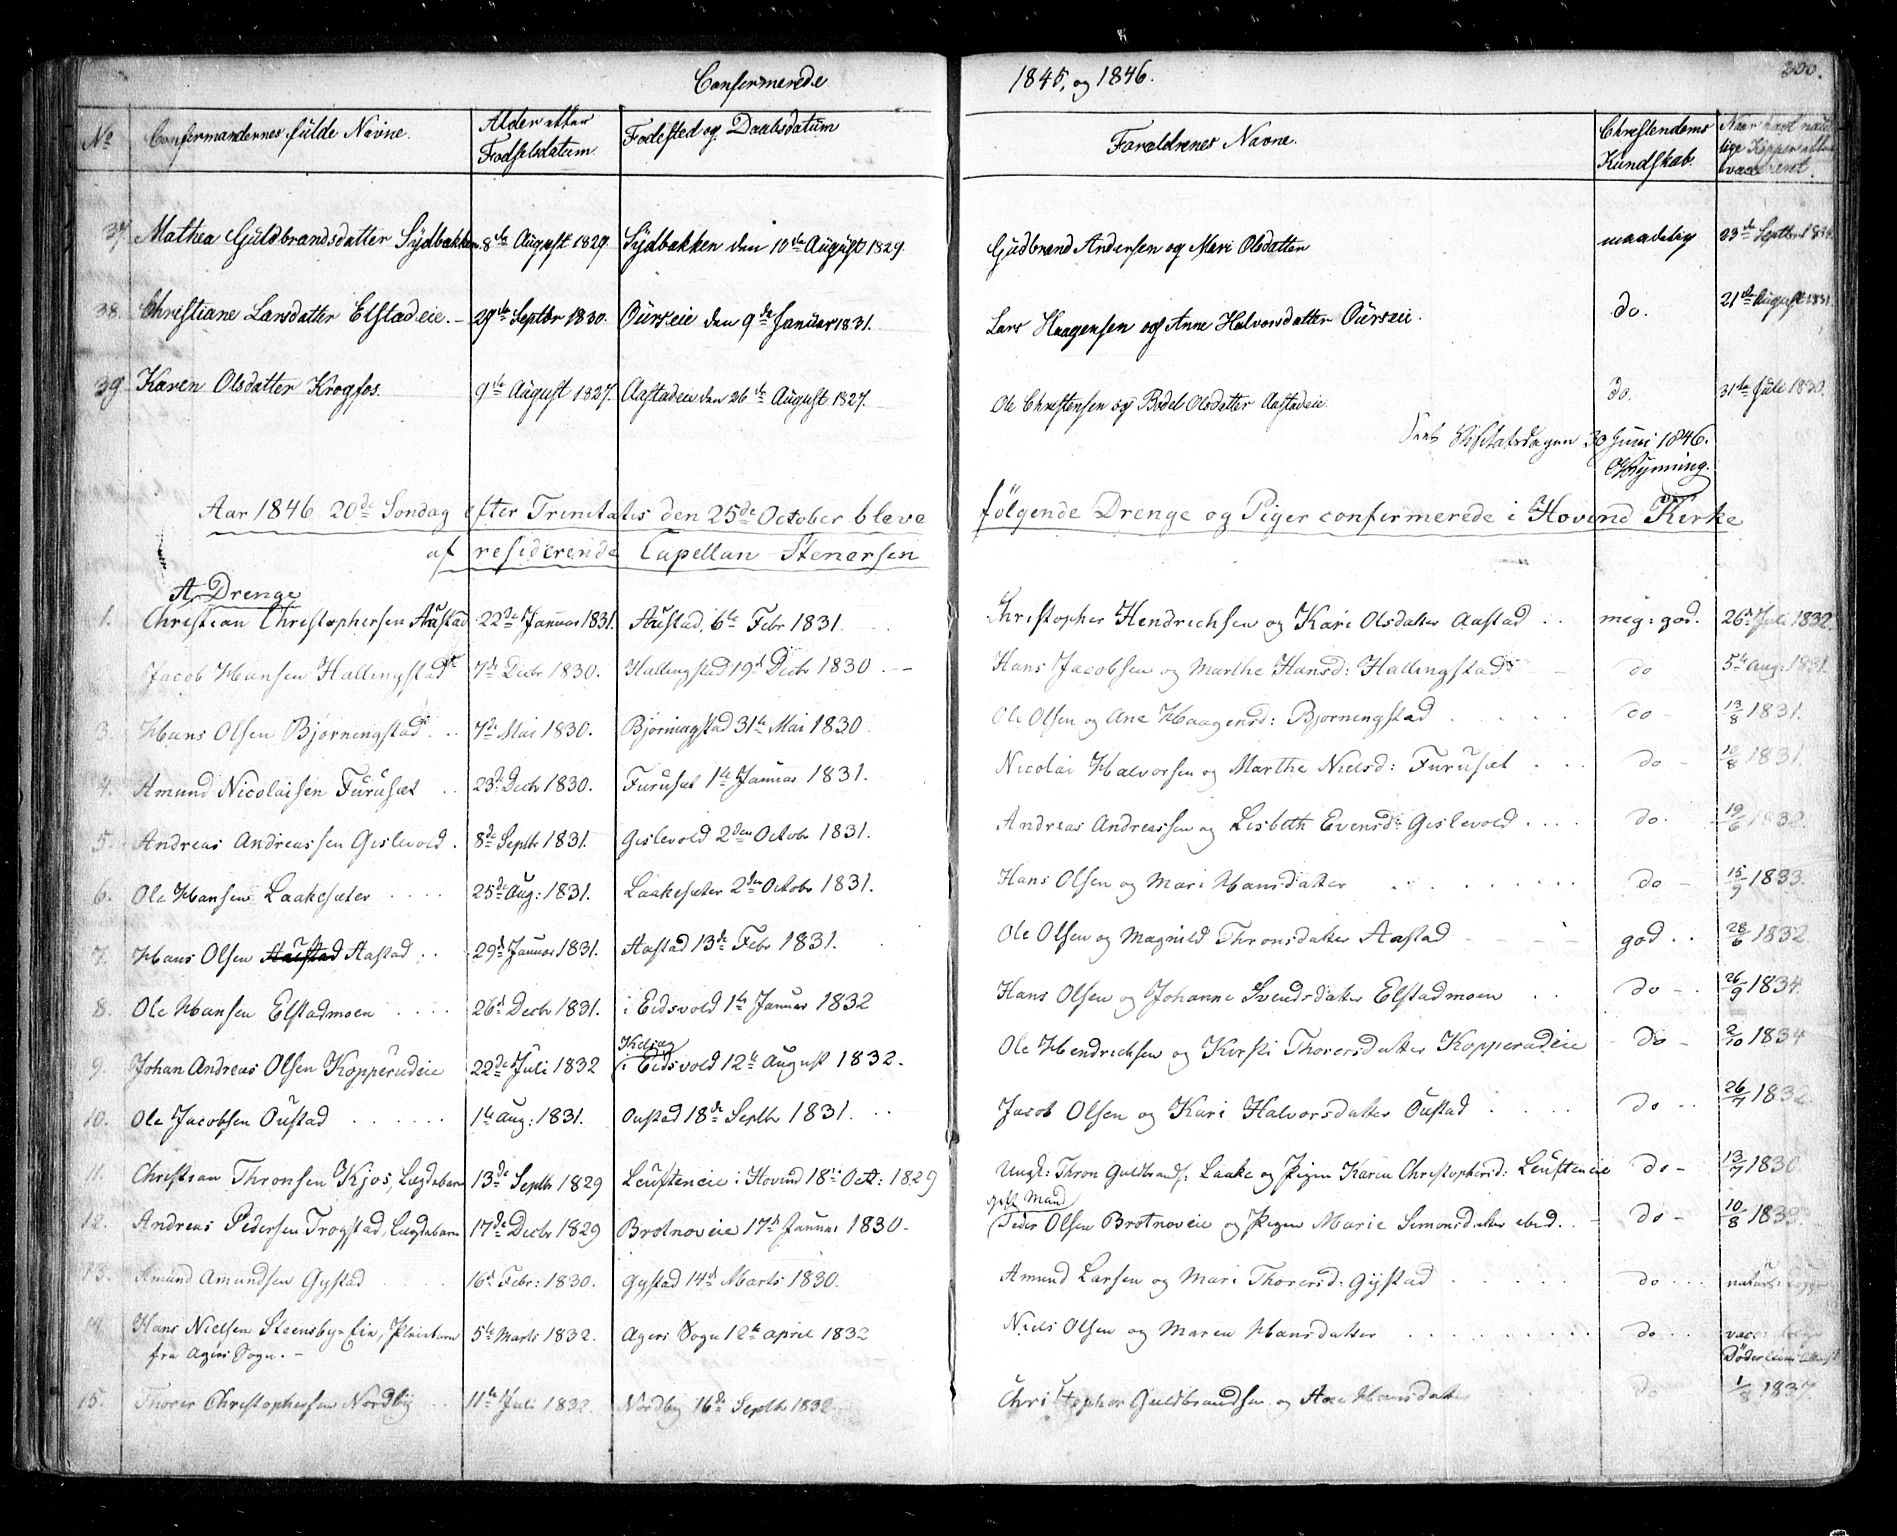 Confirmerede 1845, og 1846. 200.
No Confirmandernes fulde Navne. Alder efter Fodselsdatum. Fodested og Daabsdatum Foraldrenes Navne. Christendoms Kundskab. Naar havt naturlige Kopper eller vaccineret.
37. Mathea Guldbrandsdatter Sydbakken 8de August 1829 Sydbakken den 10de August 1829. Gudbrand Andersen og Mari Olsdatter maadelig 23de Septbr
38. Christiane Larsdatter Elstadeie. 29de Septbr 1830. Oürseie den 9de Januar 1831. Lars Haagensen og Anne Halvorsdatter Oürseie. do. 21de August 1831
39 Karen Olsdatter Krogfos. 9de August 1827. Aastadeie den 26de August 1827. Ole Christensen og Bodel Olsdatter Aastadeie. do. 31te Juli 1830.
Visitatsdagen 30 Juni 1846.
Aar 1846 20de Søndag efter Trinitatis den 25de October bleve følgende Drenge og Piger confirmerede i Hovind Kirke
af residerende Capellan Stenersen
A. Drenge
1. Christian Christophersen Aastad 22de Januar 1831. Aastad, 6te Febr 1831. Christopher Hendrichsen og Kari Olsdatter Aastad meg: god. 26de Juli 1832.
Jacob Hansen Hallingstad 7de Decbr 1830. Hallingstad 19de Decbr 1830. Hans Jacobsen og Marthe Hansd: Hallingstad do 5te Aug: 1831.
3. Hans Olsen Bjørningstad 7de Mai 1830. Bjørningstad 31te Mai 1830 Ole Olsen og Ane Haagensd: Bjørningstad do 13/8 1831.
4. Amund Nicolaisen Furuset 23de Decbr 1830. Furuset 1te Januar 1831. Nicolai Halvorsen og Marthe Nielsd: Furuset do 12/8 1831.
5. Andreas Andreassen Gislevold. 8de Septbr 1831. Gislevold 2den Octobr 1831. Andreas Andreassen og Lisbeth Evensd: Gislevold do. 19/6 1832.
6. Ole Hansen Laakesæter 25de Aug: 1831. Laakesæter 2den Octobr 1831. Hans Olsen og Mari Hansdatter do 15/9 1833.
7. Hans Olsen Aastad Aastad 29de Januar 1831. Aastad 13de Febr 1831. Ole Olsen og Magnild Thronsdatter Aastad god 28/6 1832
8. Ole Hansen Elstadmoen 26de Decbr 1831. i Eidsvold 1te Januar 1832 Hans Olsen og Johanne Svendsdatter Elstadmoen do 26/9 1834.
9. Johan Andreas Olsen Kopperudeie 22de Juli 1832 i Eidsvold 12te August 1832. Ole Hendrichsen og Kirsti Thorersdatter Kopperudeie do 2/10 1834
10. Ole Jacobsen Oustad 1te Aug: 1831. Oustad 18de Septbr 1831. Jacob Olsen og Kari Halvorsdatter Oustad do 26/7 1832
11. Christian Thronsen Kjos, Lægdebarn 13de Septbr 1829 Leufteneie i Hovind 18de Oct: 1829 Ungk: Thron Guldbrands: Laake og Pigen Karen Christophersd: Leufteneie do 13/7 1830
12. Andreas Pedersen Trogstad, Lægdebarn 17de Decbr 1829 Brotnoveie 17de Januar 1830. gift Mand Peder Olsen Brotnoveie og Pigen Marie Simonsdatter ibid. do 10/8 1833.
13. Amund Amundsen Gystad 16de Febr: 1830. Gystad 14de Marts 1830. Amund Larsen og Mari Thorersd: Gystad do naturl:
14. Hans Nielsen Steensby-Eie, Pleiebarn 5te Marts 1832. Agers Sogn 12te April 1832 Niels Olsen og Maren Hansdatter do
fra Agers Sogn.
15. Thorer Christophersen Nordby 11te Juli 1832. Nordby 16de Septbr 1832 Christopher Guldbrandsen og Ane Hansdatter do 1/8 1837